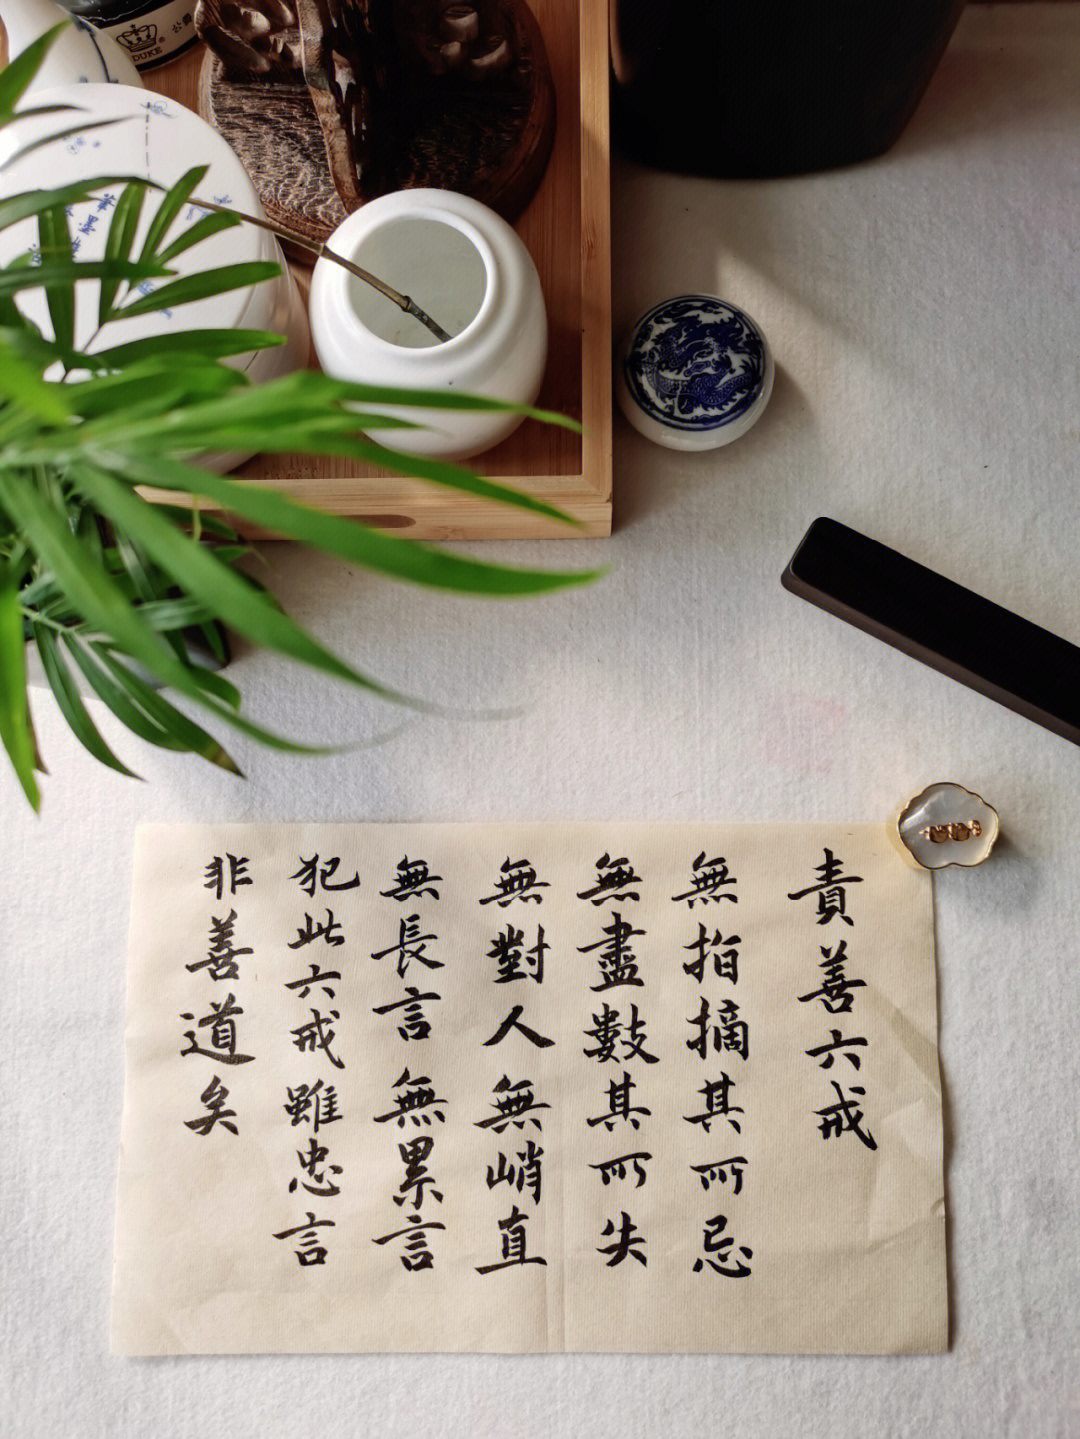 責善六戒
無指摘其所忌
無盡數其所失
無對人無峭直
無長言無累言
犯此六戒雖忠言
非善道矣
公爵
DUKE
筆墨